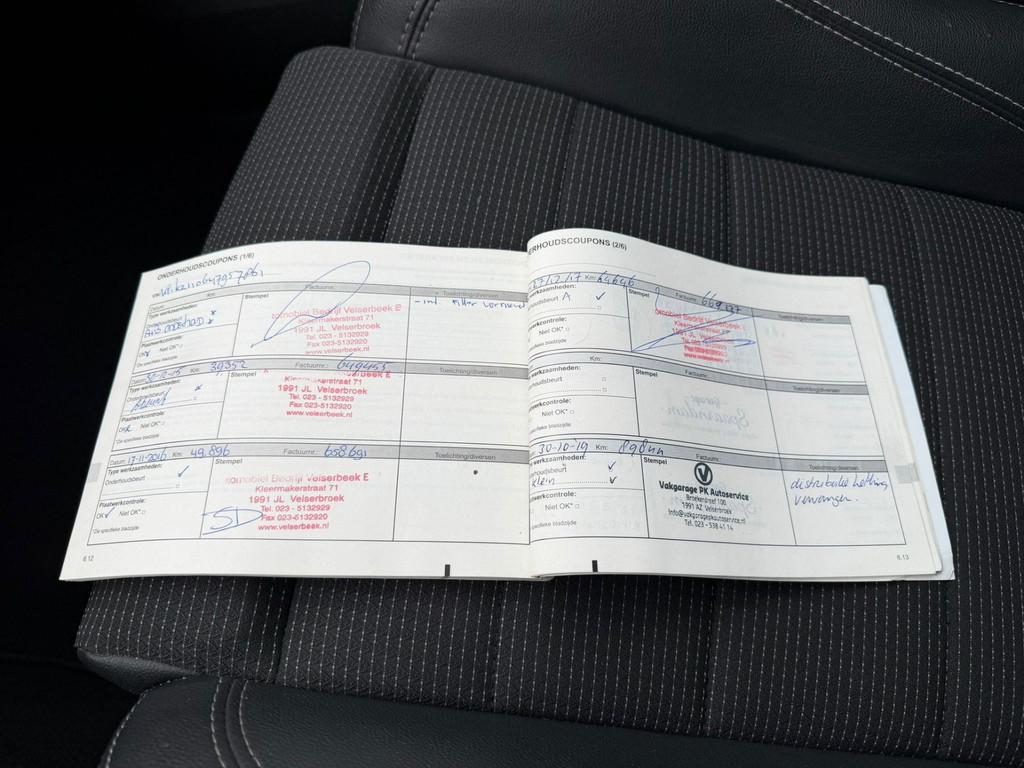 ONDERHOUDSCOUPONS (1/6)
VIN
Datum: Km: Stempel Factuurnr.: Toelichting/diversen
Type werkzaamheden:
Onderhoudsbeurt
- int. filter vernieuwd
Automobiel Bedrijf Velserbeek B
Kleermakerstraat 71
1991 JL Velserbroek
Tel. 023 - 5132929
Fax 023-5132920
www.velserbeek.nl
Plaatwerkcontrole:
OK Niet OK*
*Zie specifieke bladzijde
Km: 39352 Factuurnr.: 649455 Toelichting/diversen
Type werkzaamheden:
Stempel
Onderhoudsbeurt
Kleermakerstraat 71
1991 JL Velserbroek
Tel. 023 - 5132929
Fax 023-5132920
www.velserbeek.nl
Plaatwerkcontrole:
OK Niet OK*
*Zie specifieke bladzijde
Datum: 17-11-2016 Km: 49.896 Factuurnr.: 658691 Toelichting/diversen
Type werkzaamheden:
Stempel
Onderhoudsbeurt
omobiel Bedrijf Velserbeek B
Kleermakerstraat 71
1991 JL Velserbroek
Tel. 023 - 5132929
Fax 023-5132920
www.velserbeek.nl
Plaatwerkcontrole:
OK Niet OK*
SD
*Zie specifieke bladzijde
6.12
ERHOUDSCOUPONS (2/6)
27/12/17 Km: 64646 Factuurnr.: 669197
werkzaamheden: Stempel Toelichting/diversen
houdsbeurt A
omobiel Bedrijf Velserbeek B
Kleermakerstraat 71
1991 JL Velserbroek
www.velserbeek.nl
werkcontrole:
Niet OK*
specifieke bladzijde
Km: Factuurnr.:
werkzaamheden: Stempel Toelichting/diversen
houdsbeurt
werkcontrole:
Niet OK*
specifieke bladzijde
30-10-19 Km: Factuurnr.:
werkzaamheden: Stempel Toelichting/diversen
houdsbeurt
klein
Vakgarage PK Autoservice
Broekeroef 100
1991 AZ Velserbroek
Info@vakgaragepkautoservice.nl
Tel. 023 - 538 41 14
distributie ketting
vervangen.
werkcontrole:
Niet OK*
specifieke bladzijde
6.13